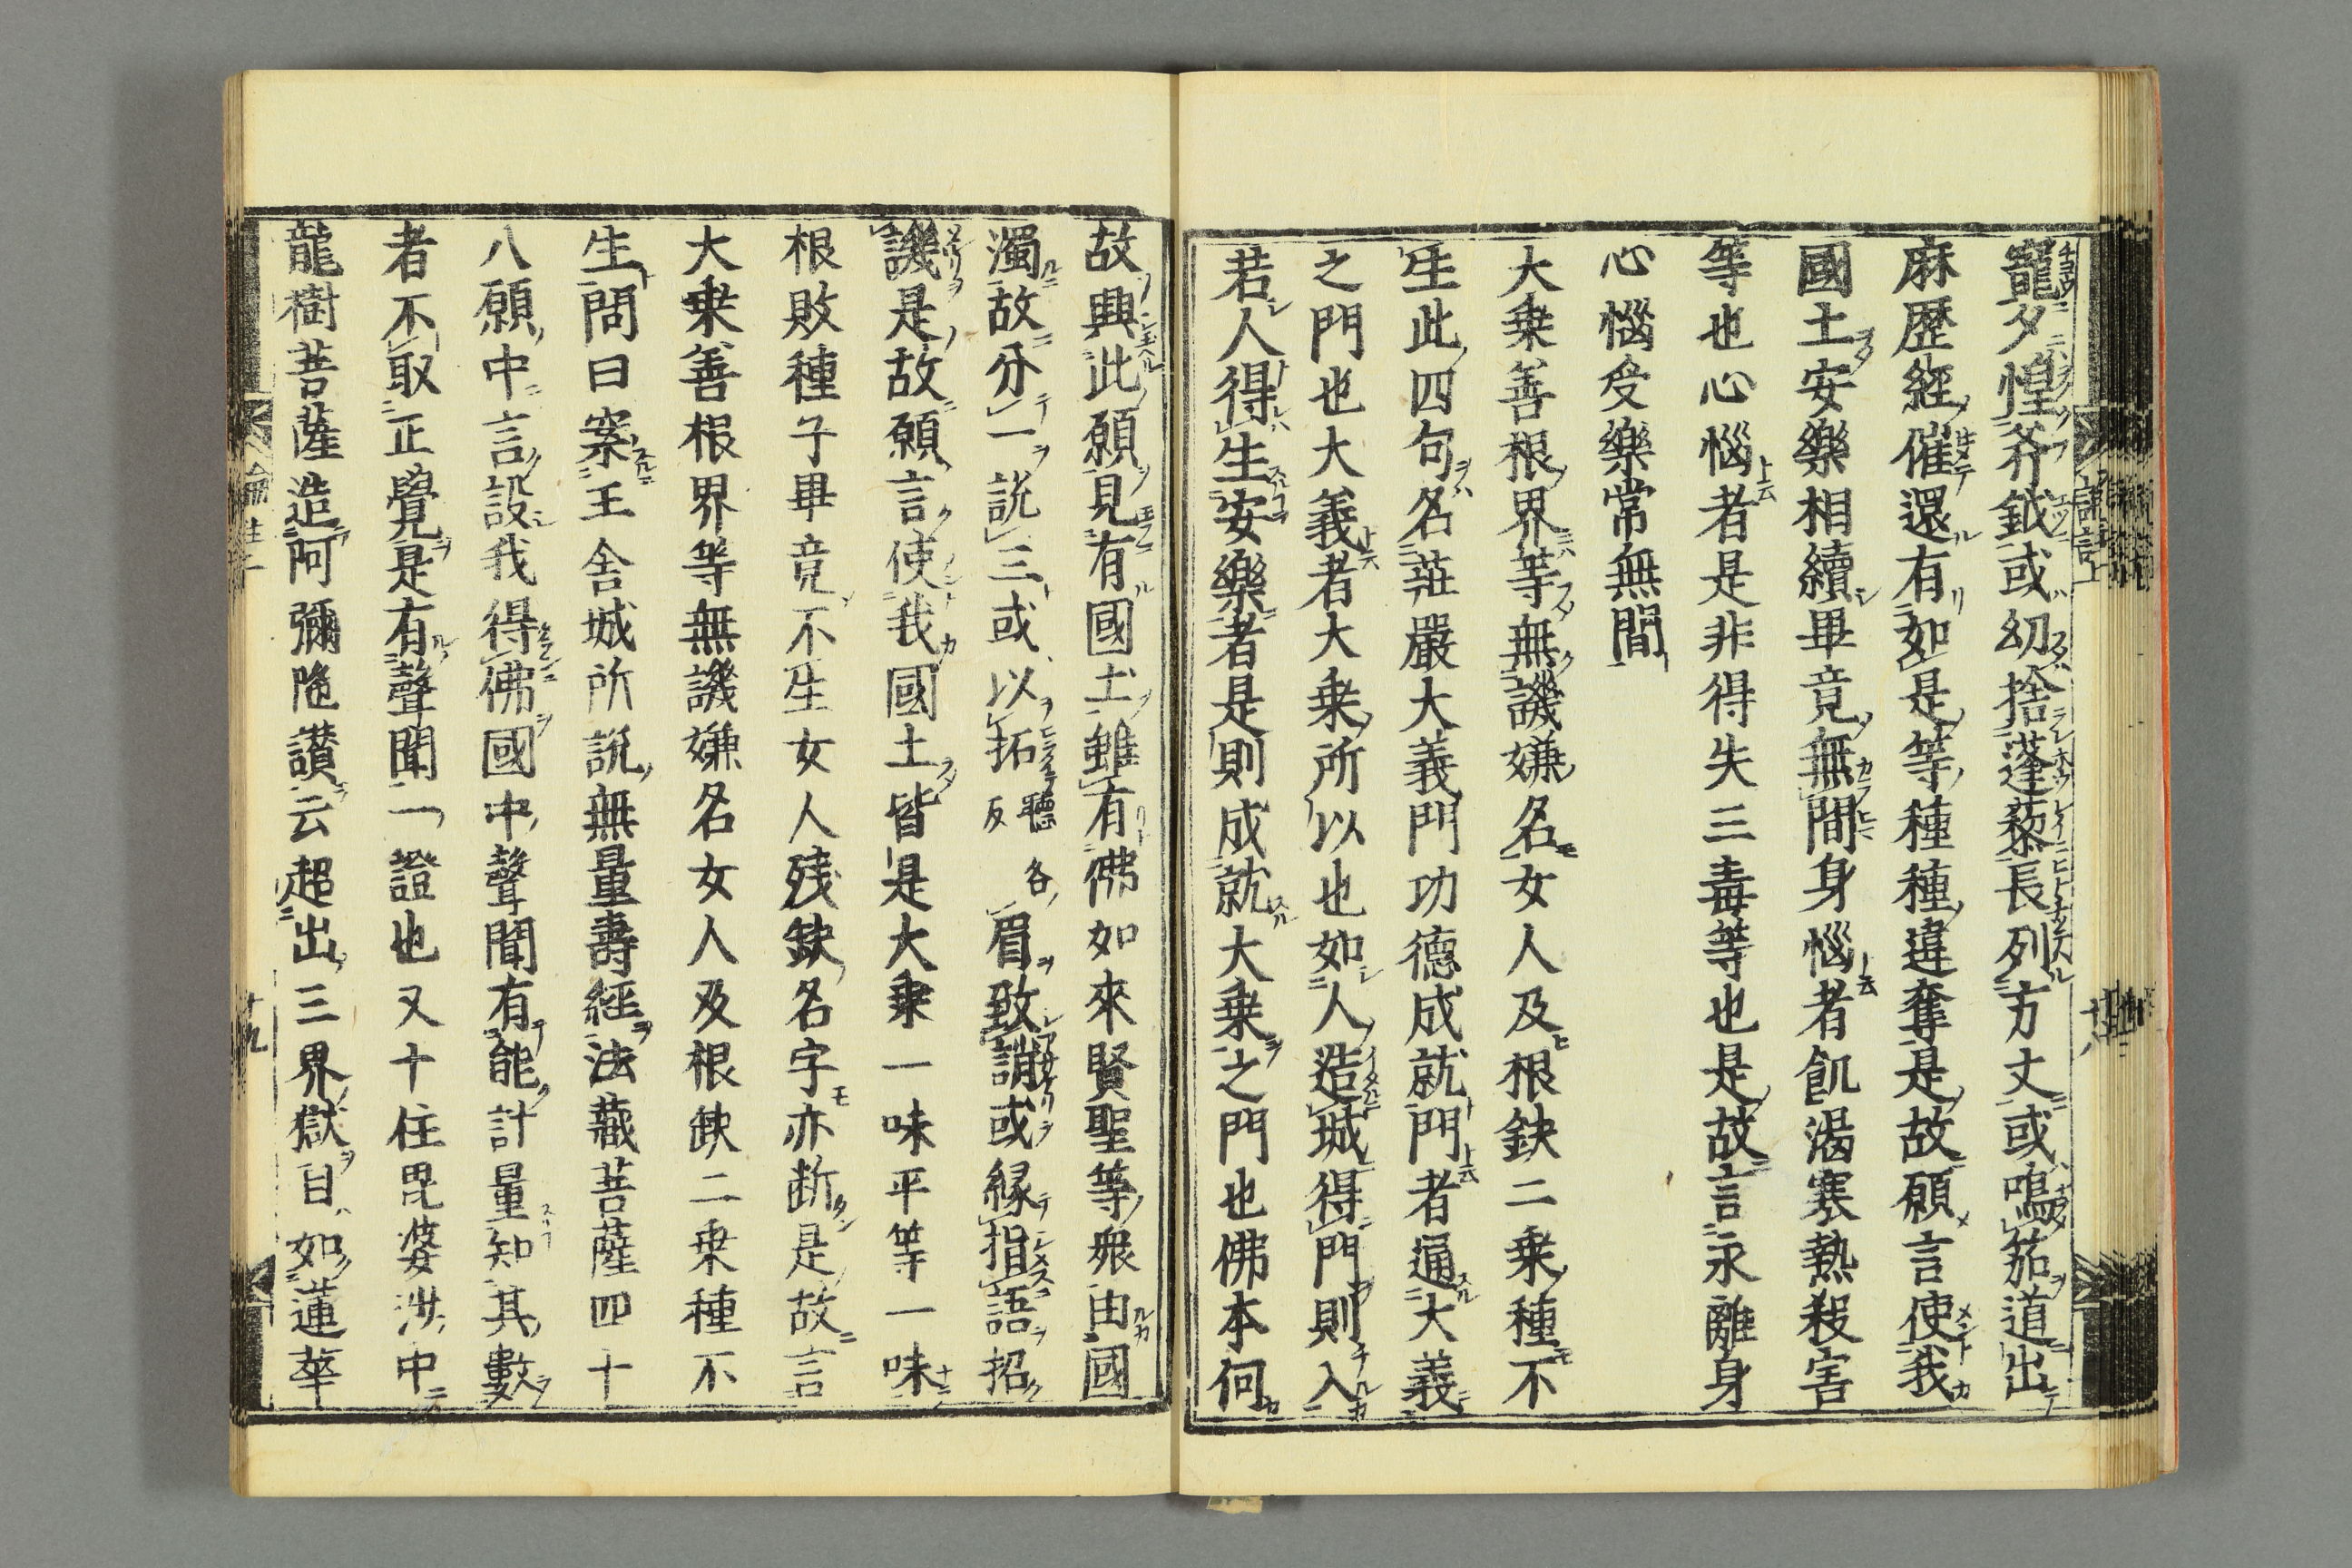 寵夕惶斧鉞或幼捨蓬藜長列方丈或鳴笳道出
麻歴經催還有如是等種種違奪是故願言使我
國土安樂相續畢竟無間身惱者飢渴寒熱殺害
等也心惱者是非得失三毒等也是故言永離身
心惱受樂常無間
大乗善根界等無譏嫌名女人及根缺二乗種不
生此四句名莊嚴大義門功德成就門者通大義
之門也大義者大乗所以也如人造城得門則入
若人得生安樂者是則成就大乗之門也佛本何
故興此願見有國土雖有佛如來賢聖等衆由國
濁故分一說三或以拓聽各反眉致誚或縁指語招
譏是故願言使我國土皆是大乗一味平等一味
根敗種子畢竟不生女人残缺名字亦断是故言
大乗善根界等無譏嫌名女人及根缺二乗種不
生問曰案王舎城所説無量壽經法藏菩薩四十
八願中言設我得佛國中聲聞有能計量知其數
者不取正覺是有聲聞一證也又十住毘婆沙中
龍樹菩薩造阿彌陁讃云超出三界獄目如蓮華
十九